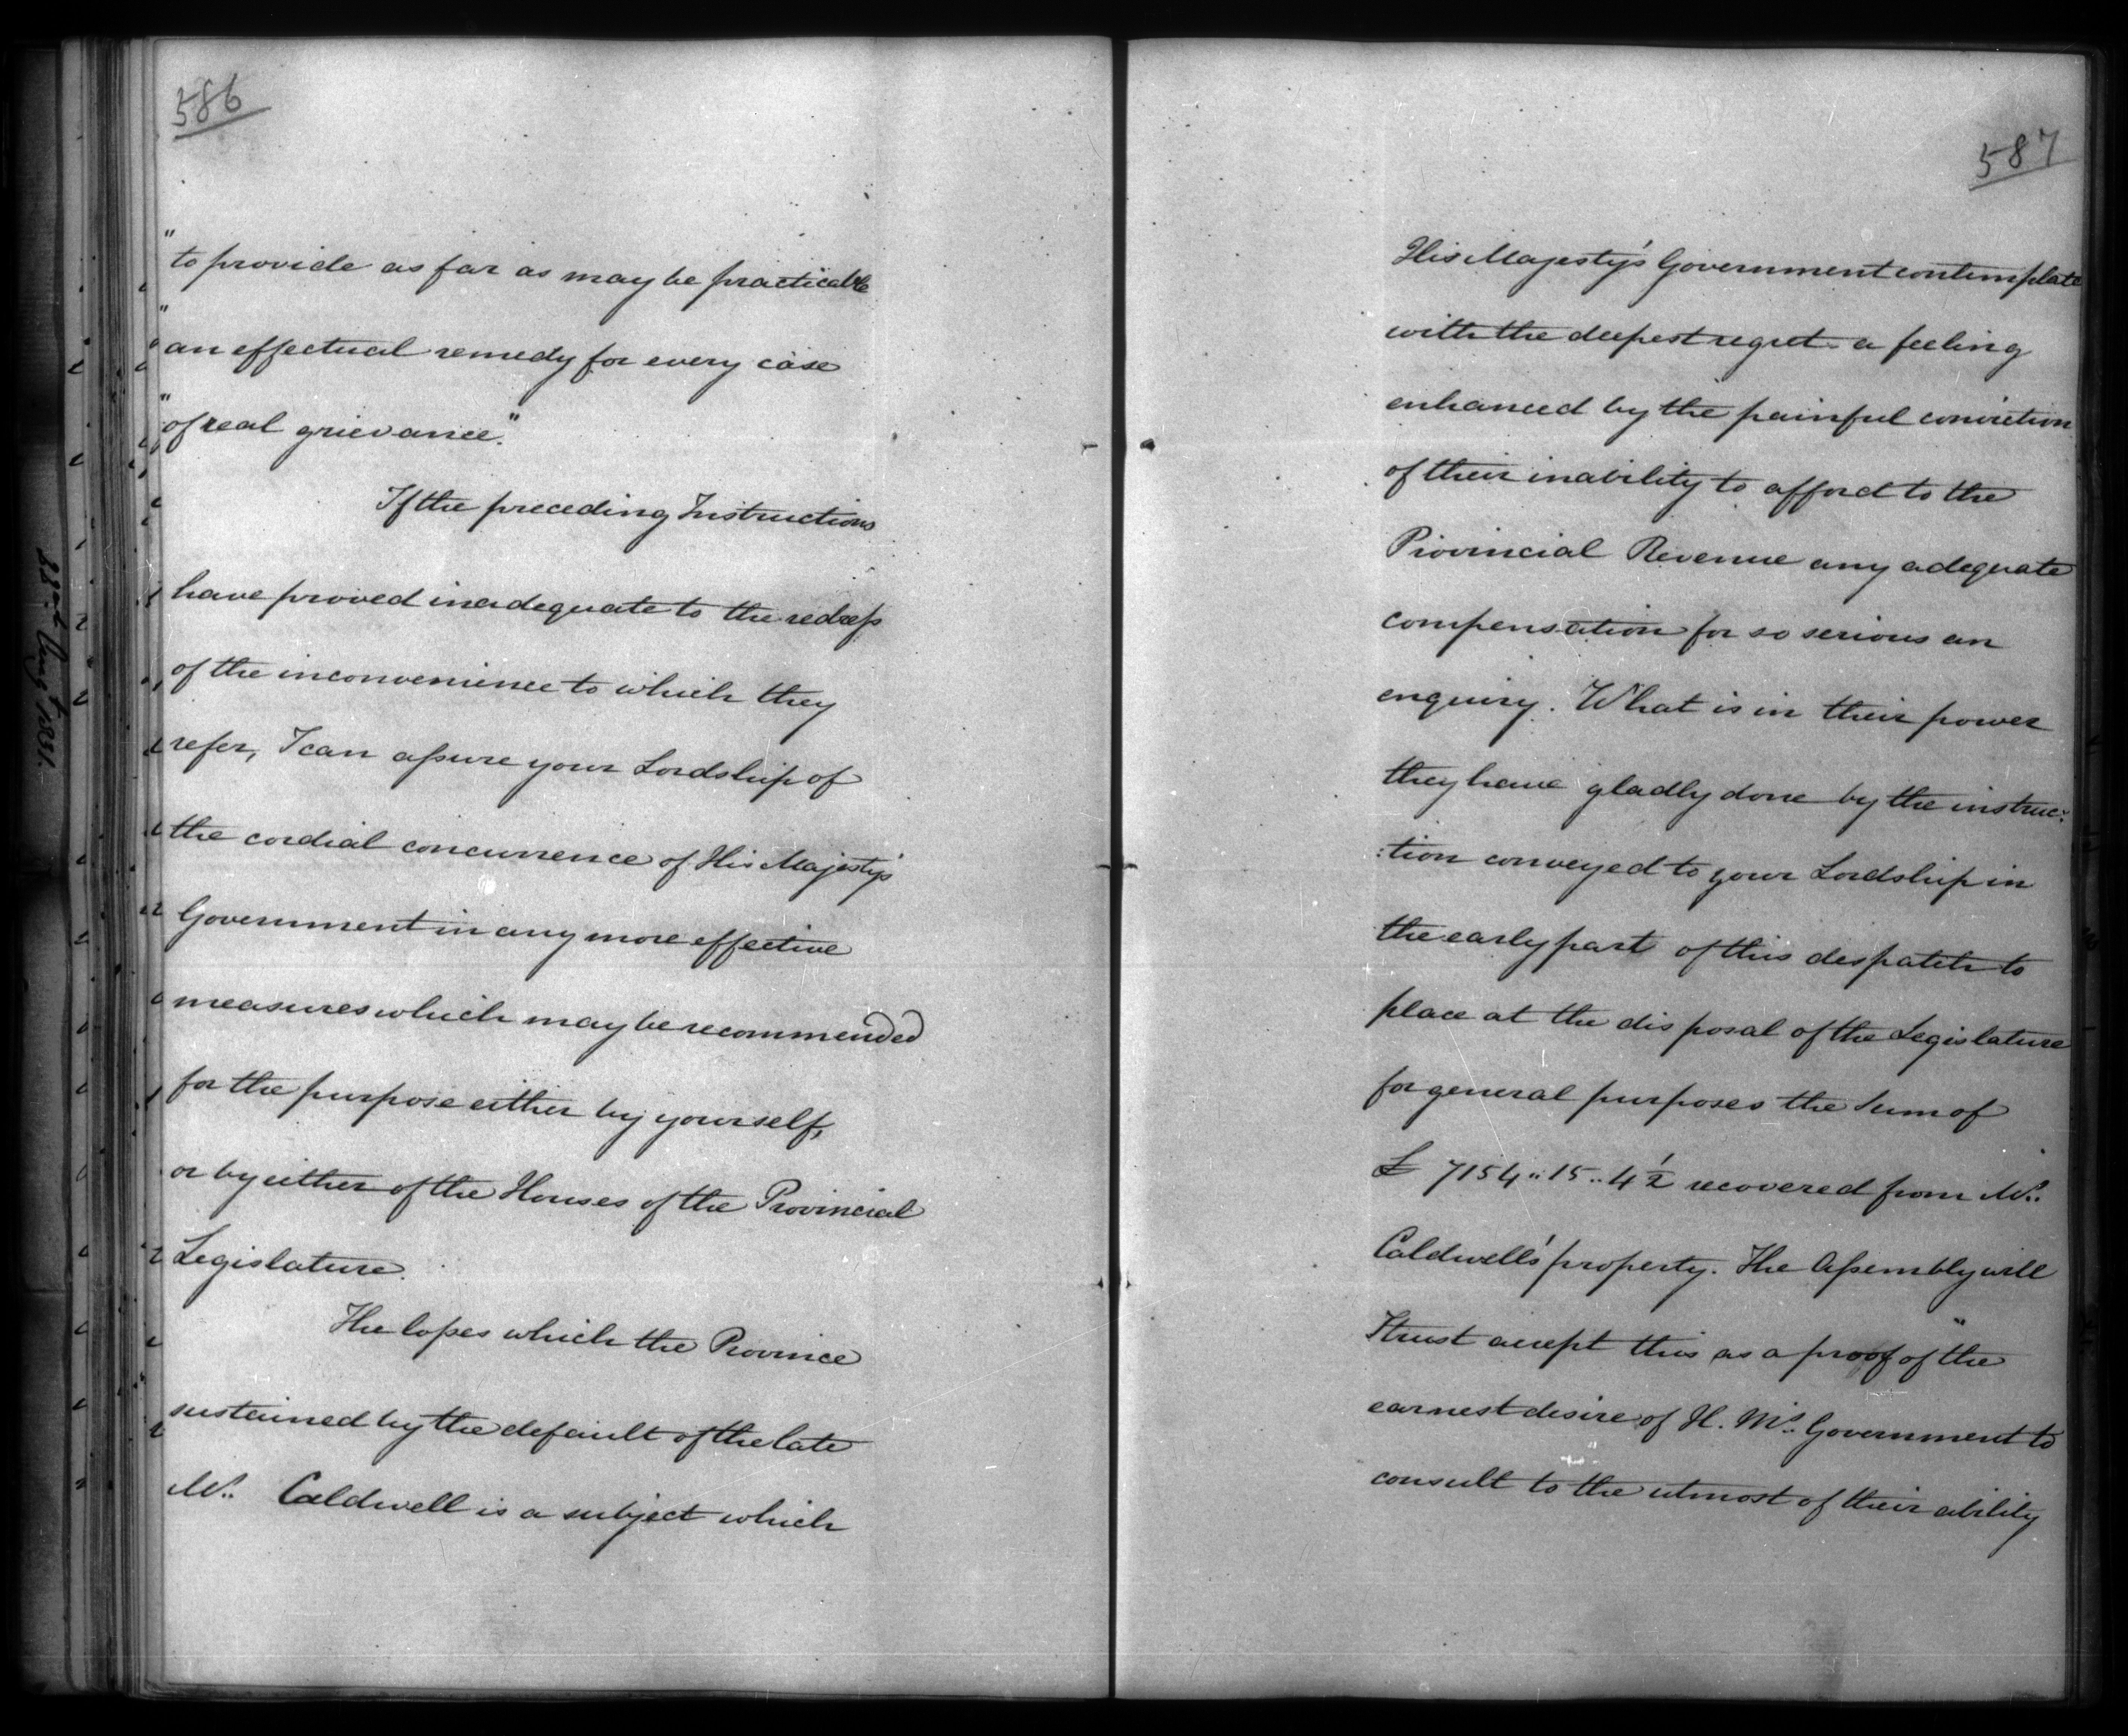 586
"to provide as far as may be practicable
"an effectual remedy for every case
"of real grievance."
If the preceding Instructions
have proved inadequate to the redress
of the inconvenience to which they
refer, I can assure your Lordship of
the cordial concurrence of His Majesty's
Government in any more effective
measures which may be recommended
for the purpose either by yourself,
or by either of the Houses of the Provincial
Legislature.
The losses which the Province
sustained by the default of the late
Mr. Caldwell is a subject which
587
His Majesty's Government contemplate
with the deepest regret a feeling
enhanced by the painful conviction
of their inability to afford to the
Provincial Revenue any adequate
compensation for so serious an
enquiry. What is in their power
they have gladly done by the instruc:
:tion conveyed to your Lordship in
the early part of this despatch to
place at the disposal of the Legislature
for general purposes the Sum of
£ 7154..15..4½ recovered from Mr.
Caldwell's property. The Assembly will
I trust accept this as a proof of the
earnest desire of H. M's. Government to
consult to the utmost of their ability